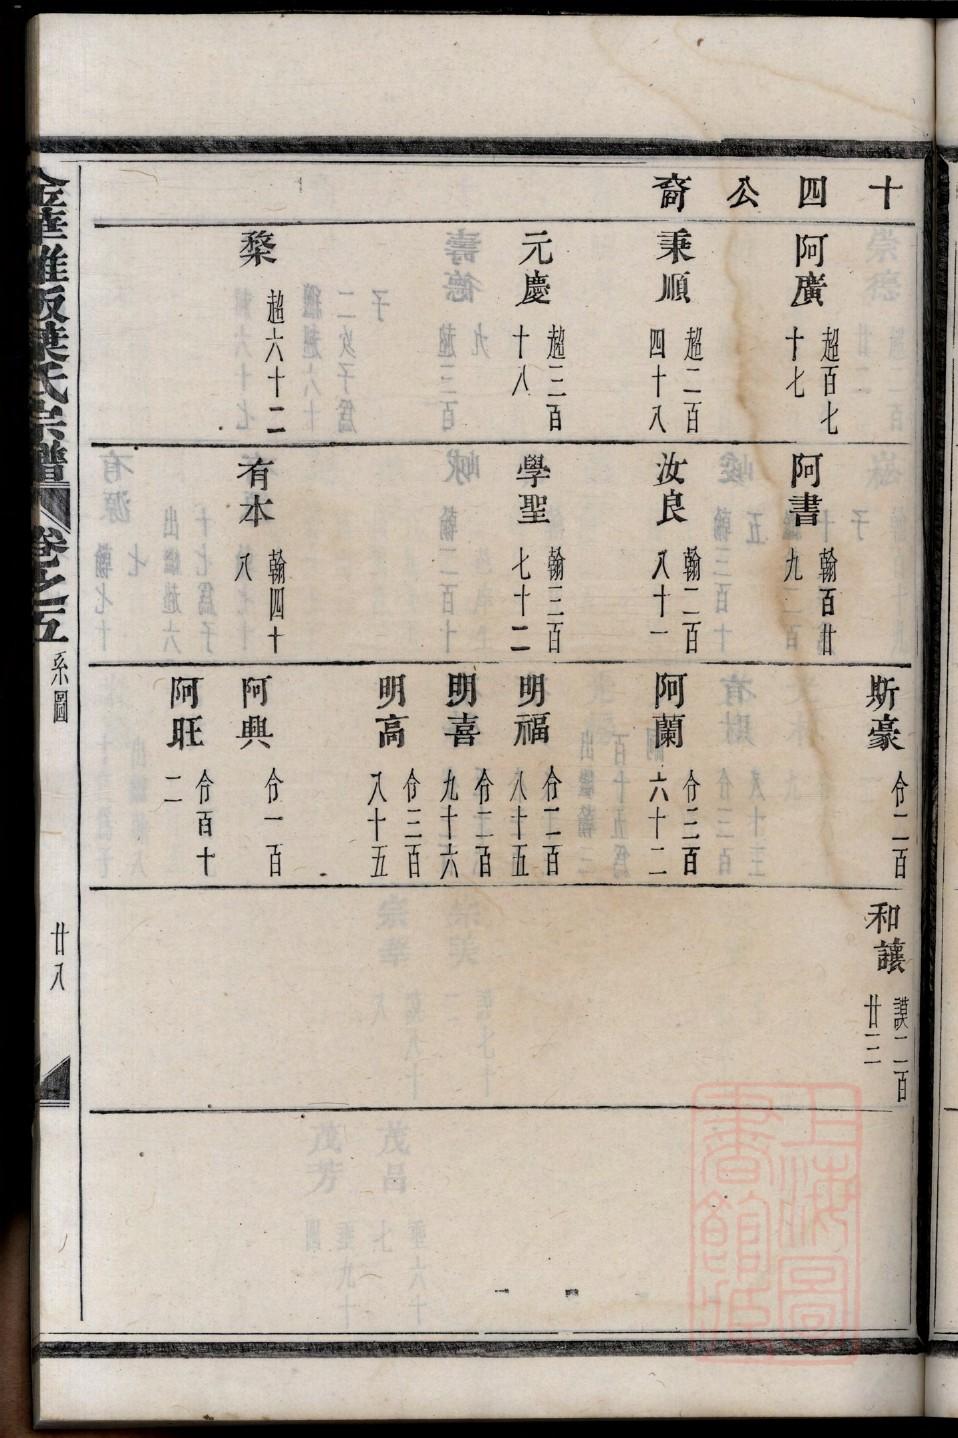 十四公裔
阿廣 超百七十七
秉順 超二百四十八
元慶 超三百十八
棃 超六十二
阿書 翰百廿九
汝良 翰二百八十一
學聖 翰三百七十二
有本 翰四十八
斯豪 仱二百
阿蘭 仱三百六十二
明福 仱二百八十五
明喜 仱二百九十六
明高 仱三百八十五
阿興 仱一百
阿旺 仱百十二
和讓 謨二百廿三
葉氏宗譜
卷之五
系圖
廿八
上海圖書館藏